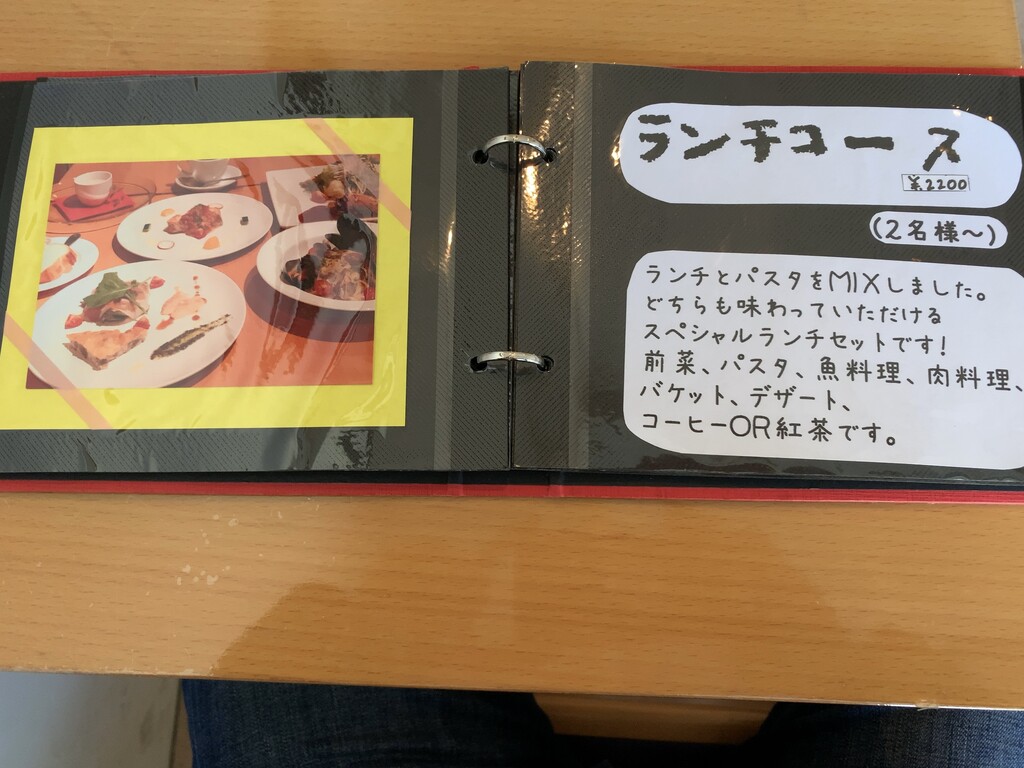 ランチコース
¥2200
(2名様〜)
ランチとパスタをMIXしました。
どちらも味わっていただける
スペシャルランチセットです!
前菜、パスタ、魚料理、肉料理、
バケット、デザート、
コーヒーOR紅茶です。